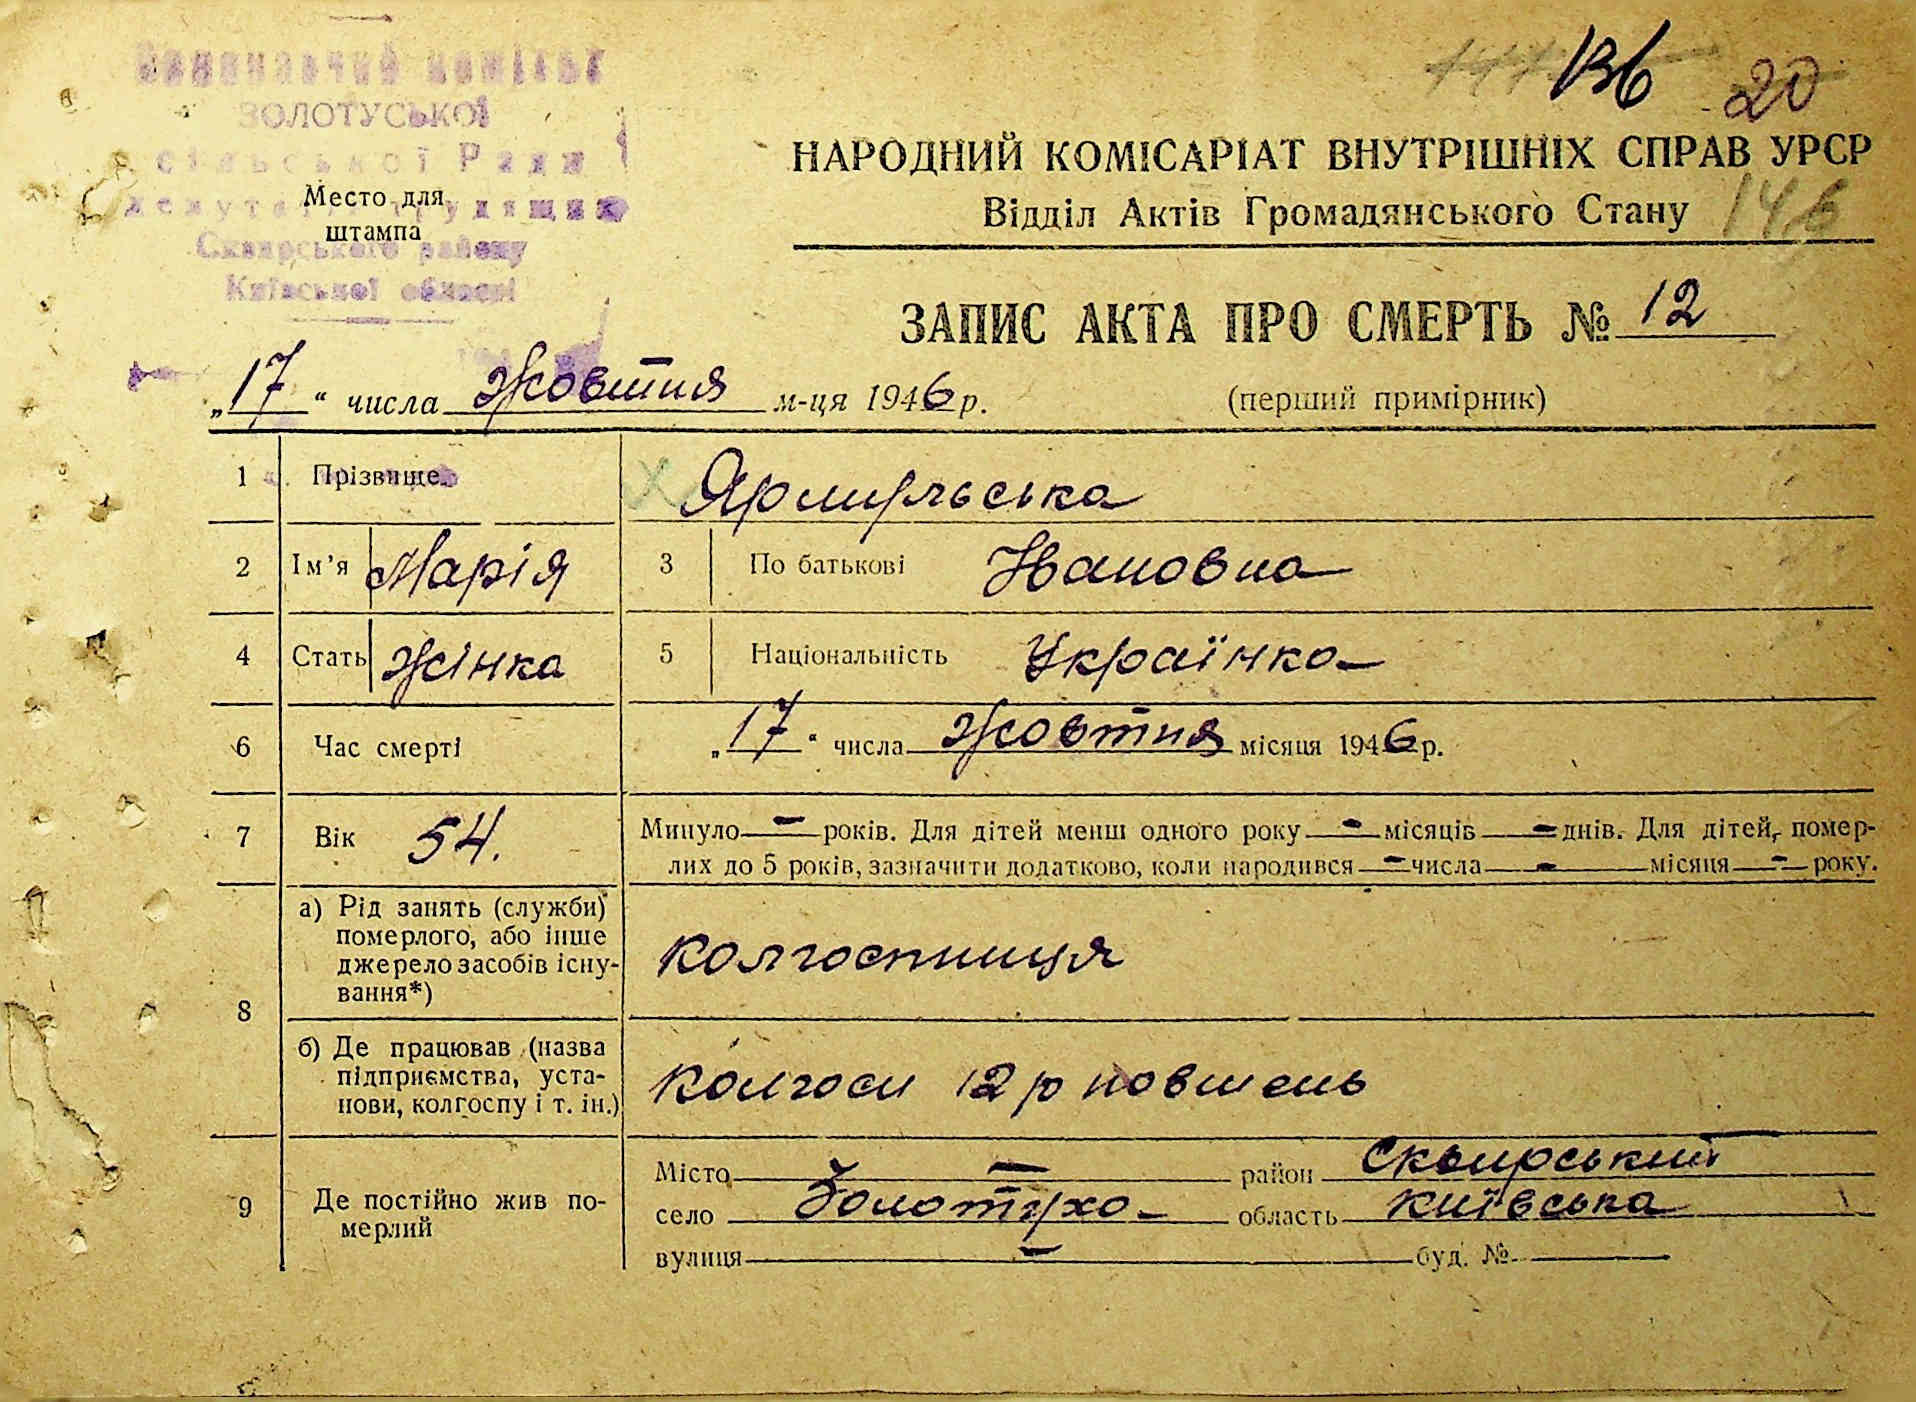 Виконавчий комітет
ЗОЛОТУСЬКОЇ
сільської Ради
депутатів трудящих
Сквирського району
Київської області
Место для
штампа
136 20
НАРОДНИЙ КОМІСАРІАТ ВНУТРІШНІХ СПРАВ УРСР
Відділ Актів Громадянського Стану 146
ЗАПИС АКТА ПРО СМЕРТЬ № 12
„17“ числа жовтня м-ця 1946 р.
(перший примірник)
1 Прізвище
2 Ім'я Марія 3 По батькові Івановна
4 Стать жінка 5 Національність Українка
6 Час смерті „17“ числа жовтня місяця 1946 р.
7 Вік 54. Минуло — років. Для дітей менш одного року — місяців — днів. Для дітей, помер-
лих до 5 років, зазначити додатково, коли народився — числа — місяця — року.
8 а) Рід занять (служби)
померлого, або інше
джерело засобів існу-
вання*)
колгоспниця
б) Де працював (назва
підприємства, уста-
нови, колгоспу і т. ін.)
колгосп 12 р
9 Де постійно жив по-
мерлий
Місто — район Сквирський
село Золотуха область київська
вулиця — буд. №